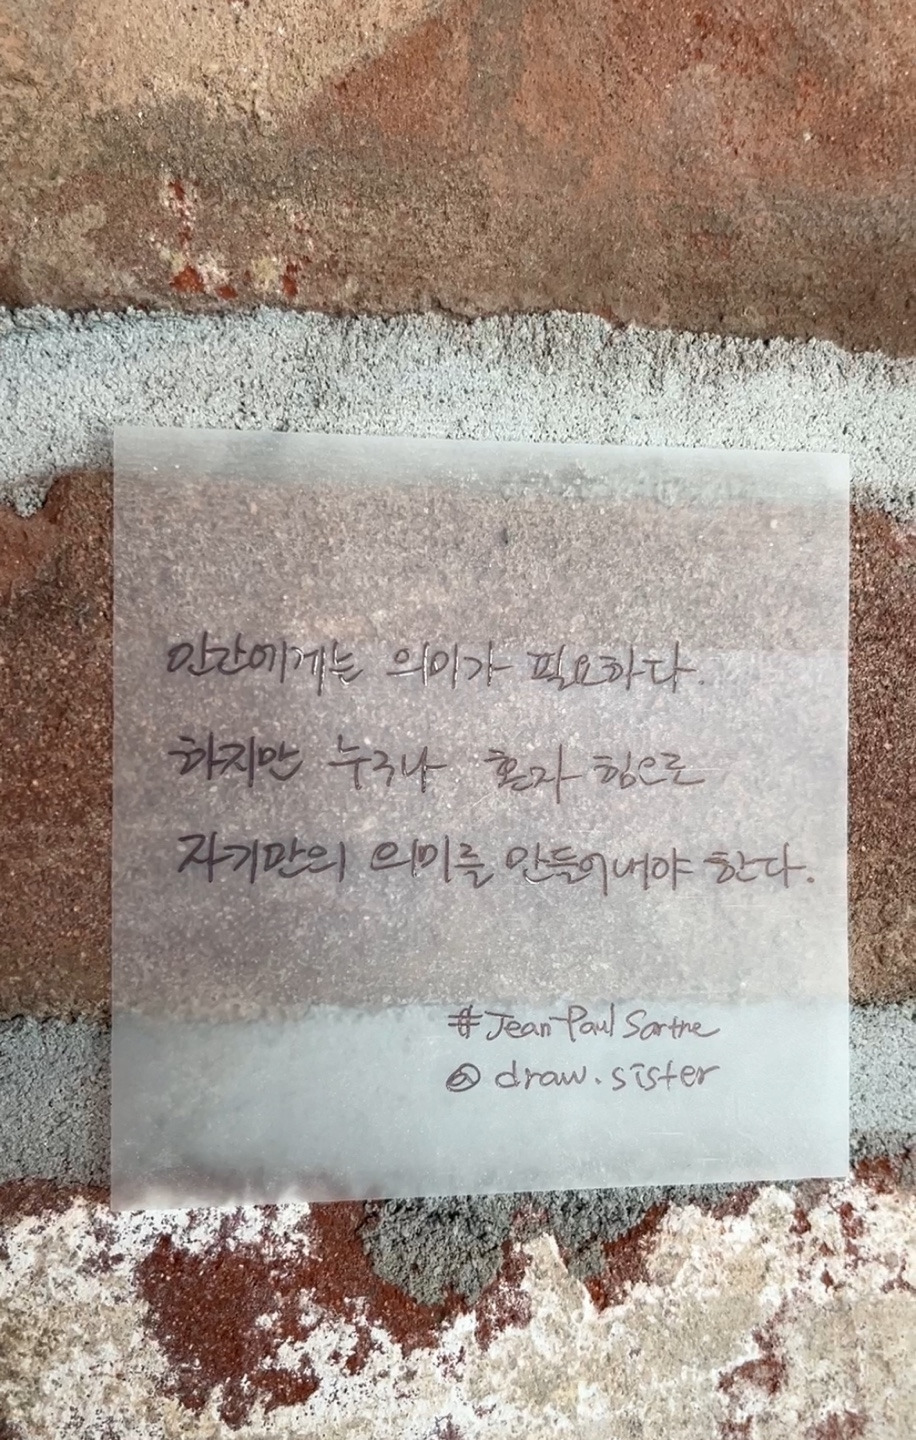 인간에게는 의미가 필요하다.
하지만 누구나 혼자 힘으로
자기만의 의미를 만들어내야 한다.
#Jean-Paul Sartre
@draw.sister